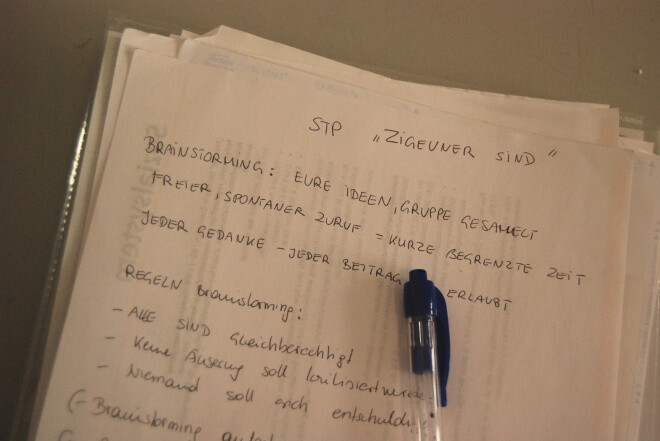 STP „ZIGEUNER SIND"
BRAINSTORMING: EURE IDEEN, GRUPPE GESAMELT
FREIER, SPONTANER ZURUF = KURZE BEGRENZTE ZEIT
JEDER GEDANKE - JEDER BEITRAG ERLAUBT
REGELN Brainstorming:
- Alle SIND Gleichberechtigt
- Keine Äusserung soll kritisiert werde
- Niemand soll sich entschuldi
(- Brainstorming